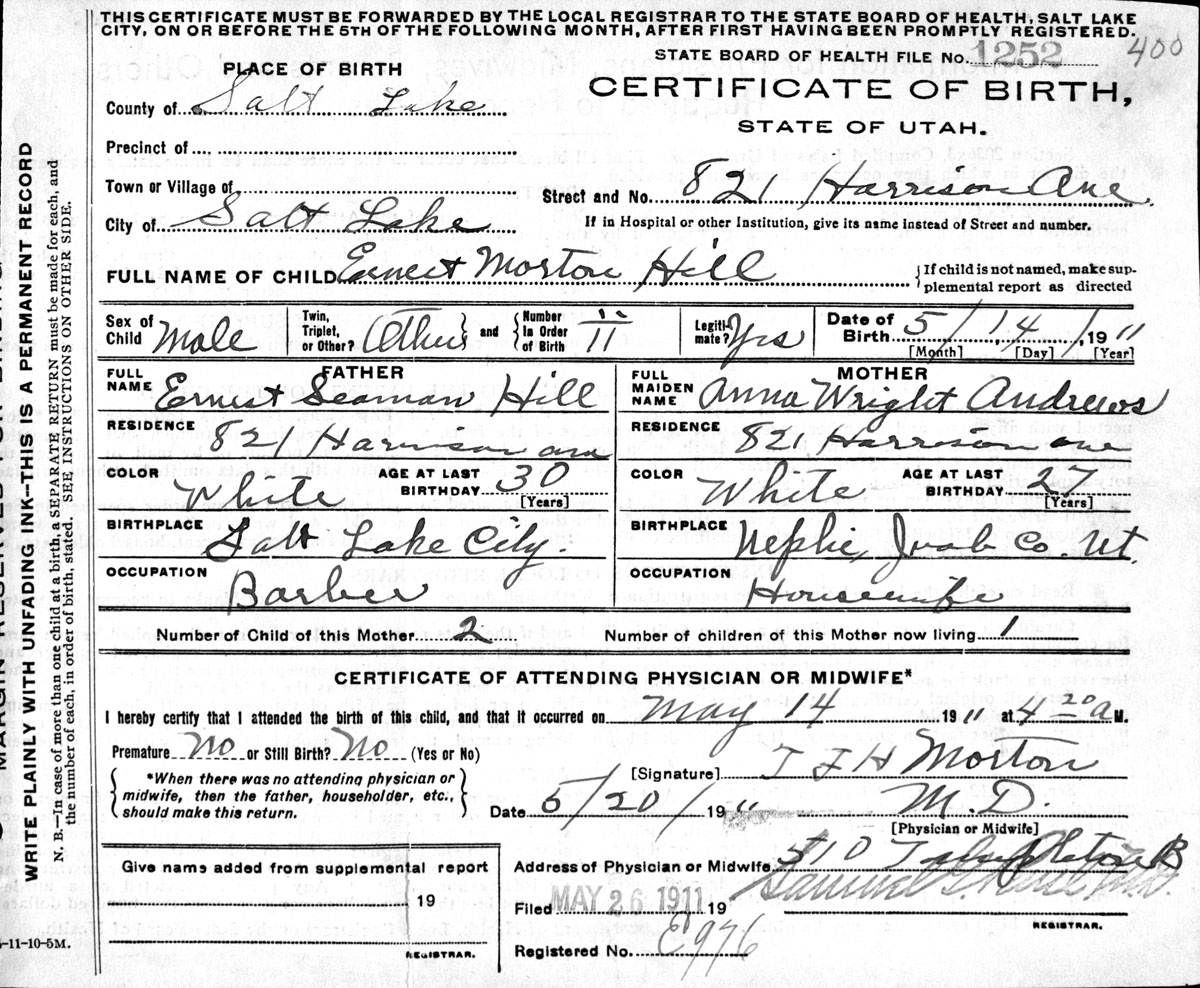 THIS CERTIFICATE MUST BE FORWARDED BY THE LOCAL REGISTRAR TO THE STATE BOARD OF HEALTH, SALT LAKE
CITY, ON OR BEFORE THE 5TH OF THE FOLLOWING MONTH, AFTER FIRST HAVING BEEN PROMPTLY REGISTERED.
400
STATE BOARD OF HEALTH FILE No. 1252
PLACE OF BIRTH
CERTIFICATE OF BIRTH,
STATE OF UTAH.
County of Salt Lake
Precinct of
Town or Village of
Street and No. 821 Harrison Ave.
City of Salt Lake
If in Hospital or other Institution, give its name instead of Street and number.
FULL NAME OF CHILD Ernest Morton Hill
If child is not named, make sup-
plemental report as directed
Sex of Child Male
Twin, Triplet, or Other?
and
Number in Order of Birth 11
Legiti- mate? Yes
Date of Birth 5/14/1911
[Month] [Day] [Year]
FATHER
FULL NAME Ernest Seaman Hill
RESIDENCE 821 Harrison ave
COLOR White AGE AT LAST BIRTHDAY 30 [Years]
BIRTHPLACE Salt Lake City.
OCCUPATION Barber
MOTHER
FULL MAIDEN NAME Anna Wright Andrews
RESIDENCE 821 Harrison ave
COLOR White AGE AT LAST BIRTHDAY 27 [Years]
BIRTHPLACE Nephi, Juab Co. Ut
OCCUPATION Housewife
Number of Child of this Mother 2 Number of children of this Mother now living 1
CERTIFICATE OF ATTENDING PHYSICIAN OR MIDWIFE*
I hereby certify that I attended the birth of this child, and that it occurred on May 14 1911 at 4 20 a M.
Premature No or Still Birth? No (Yes or No)
[Signature] T F H Morton
*When there was no attending physician or
midwife, then the father, householder, etc.,
should make this return.
Date 5/20/1911 M.D.
[Physician or Midwife]
Give name added from supplemental report
19
REGISTRAR.
Address of Physician or Midwife 510 Templeton B
Filed MAY 26 1911 19
REGISTRAR.
Registered No. E976
-11-10-5M.
WRITE PLAINLY WITH UNFADING INK--THIS IS A PERMANENT RECORD
N. B.--In case of more than one child at a birth, a SEPARATE RETURN must be made for each, and
the number of each, in order of birth, stated. SEE INSTRUCTIONS ON OTHER SIDE.